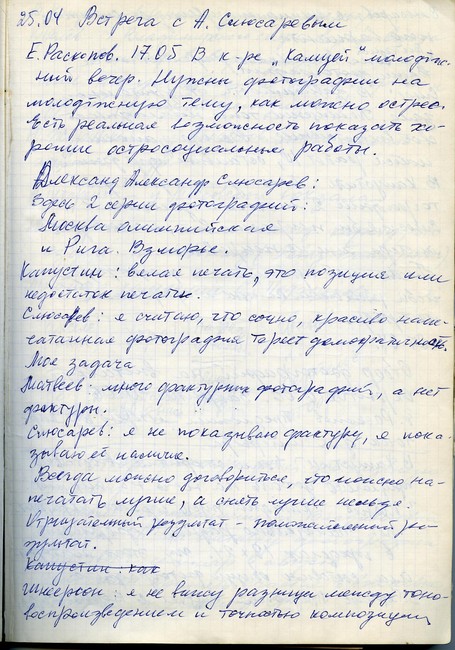 25.04 Встреча с А. Слюсаревым
Е. Раскопов. 17.05 В к-ре „Калцей" молодёж-
ний вечер. Нужны фотографии на
молодёжную тему, как можно острее.
Есть реальная возможность показать хо-
рошие остросоциальные работы.
Александ Александр Слюсарев:
Здесь 2 серии фотографий:
Москва олимпийская
и Рига. Взморье.
Капустин: белая печать, это позиция или
недостаток печати.
Слюсарев: я считаю, что сочно, красиво напе-
чатанная фотография теряет демократичность.
Моя задача
Матвеев: много фактурных фотографий, а нет
фактуры.
Слюсарев: я не показываю фактуру, я пока-
зываю её наличие.
Всегда можно договориться, что можно на-
печатать лучше, а снять лучше нельзя.
Отрицательный результат - положительный ре-
зультат.
Капустин: как
я не вижу разницы между тоно-
воспроизведением и точностью композиции